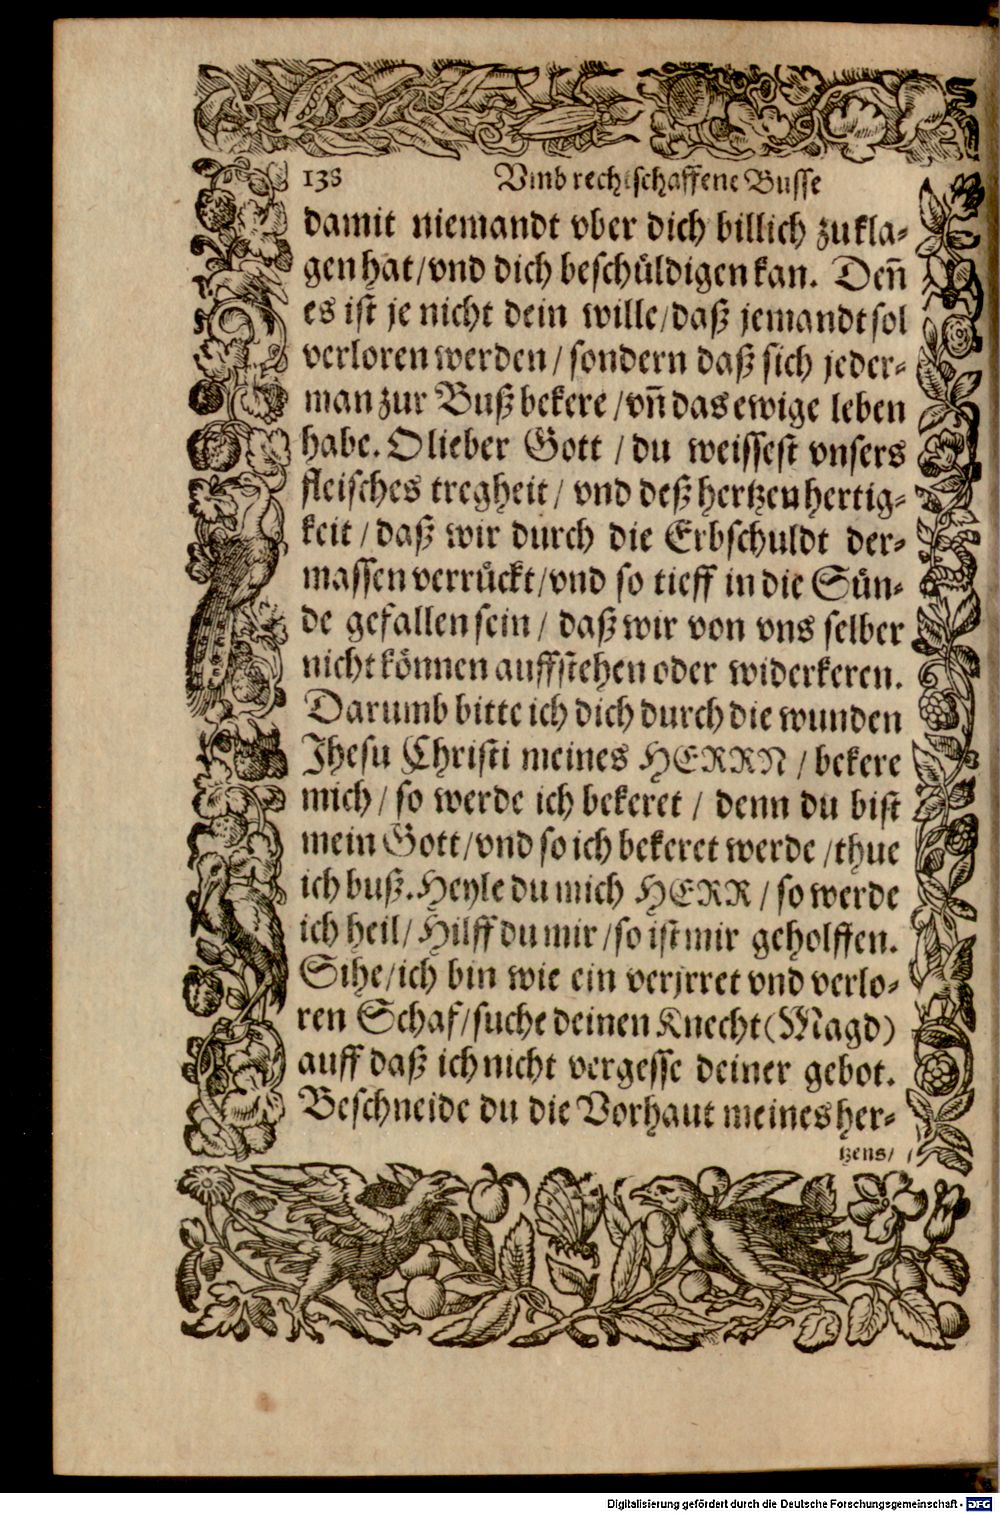 138 Vmb rechtschaffene Busse
damit niemandt vber dich billich zukla-
gen hat/vnd dich beschüldigen kan. Deñ
es ist je nicht dein wille/daß jemandt sol
verloren werden/sondern daß sich jeder-
man zur Buß bekere/vñ das ewige leben
habe. O lieber Gott/du weissest vnsers
fleisches tregheit/vnd deß hertzen hertig-
keit/daß wir durch die Erbschuldt der-
massen verrückt/vnd so tieff in die Sün-
de gefallen sein/daß wir von vns selber
nicht können auffstehen oder widerkeren.
Darumb bitte ich dich durch die wunden
Jhesu Christi meines HERRN/bekere
mich/so werde ich bekeret/denn du bist
mein Gott/vnd so ich bekeret werde/thue
ich buß. Heyle du mich HERR/so werde
ich heil/Hilff du mir/so ist mir geholffen.
Sihe/ich bin wie ein verjrret vnd verlo-
ren Schaf/suche deinen Knecht (Magd)
auff daß ich nicht vergesse deiner gebot.
Beschneide du die Vorhaut meines her-
tzens/
Digitalisierung gefördert durch die Deutsche Forschungsgemeinschaft - DFG